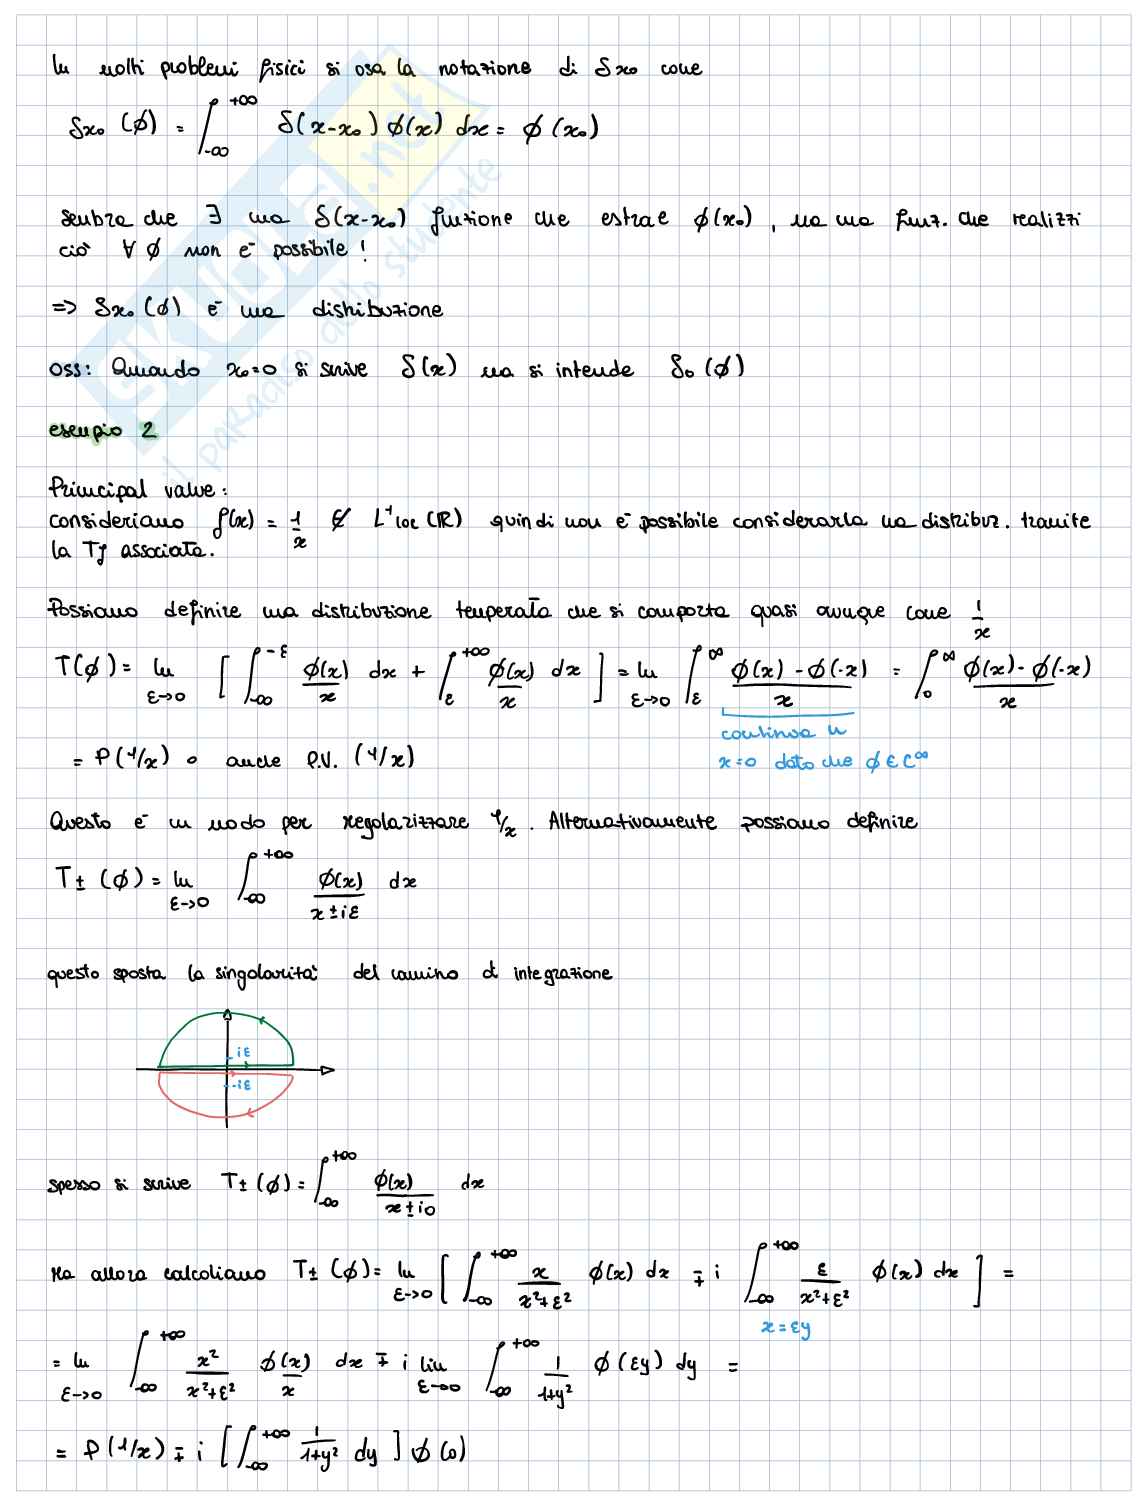 In molti problemi fisici si usa la notazione di δx₀ come
δx₀ (ϕ) = ∫_{-∞}^{+∞} δ(x-x₀) ϕ(x) dx = ϕ (x₀)
sembra che ∃ una δ(x-x₀) funzione che estrae ϕ(x₀), ma una funz. che realizzi
ciò ∀ ϕ non è possibile!
=> δx₀ (ϕ) è una distribuzione
oss: Quando x₀=0 si scrive δ(x) ma si intende δ₀ (ϕ)
esempio 2
Principal value:
consideriamo f(x) = 1/x ∉ L¹loc (ℝ) quindi non è possibile considerarla una distribuz. tramite
la Tf associata.
Possiamo definire una distribuzione temperata che si comporta quasi ovunque come 1/x
T(ϕ) = lim_{ε→0} [ ∫_{-∞}^{-ε} ϕ(x)/x dx + ∫_{ε}^{+∞} ϕ(x)/x dx ] = lim_{ε→0} ∫_{ε}^{∞} (ϕ(x) - ϕ(-x))/x = ∫_{0}^{∞} (ϕ(x) - ϕ(-x))/x
continua in
x=0 dato che ϕ ∈ C^∞
= P (1/x) o anche P.V. (1/x)
Questo è un modo per regolarizzare 1/x. Alternativamente possiamo definire
T± (ϕ) = lim_{ε→0} ∫_{-∞}^{+∞} ϕ(x)/(x±iε) dx
questo sposta la singolarità del camino di integrazione
iε
-iε
spesso si scrive T± (ϕ) = ∫_{-∞}^{+∞} ϕ(x)/(x±i0) dx
Ma allora calcoliamo T± (ϕ) = lim_{ε→0} [ ∫_{-∞}^{+∞} x/(x²+ε²) ϕ(x) dx ∓ i ∫_{-∞}^{+∞} ε/(x²+ε²) ϕ(x) dx ] =
x = εy
= lim_{ε→0} ∫_{-∞}^{+∞} x²/(x²+ε²) ϕ(x)/x dx ∓ i lim_{ε→0} ∫_{-∞}^{+∞} 1/(1+y²) ϕ(εy) dy =
= P (1/x) ∓ i [ ∫_{-∞}^{+∞} 1/(1+y²) dy ] ϕ(0)
SKUOLA.net
il paradiso dello studente